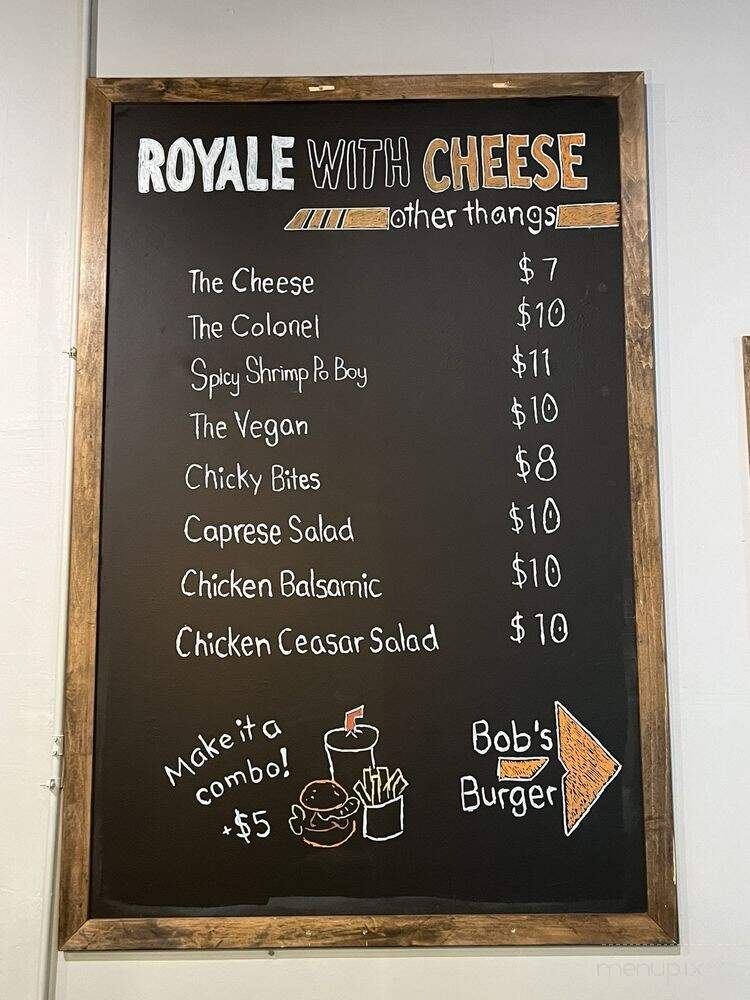 ROYALE WITH CHEESE
other thangs
The Cheese $7
The Colonel $10
Spicy Shrimp Po Boy $11
The Vegan $10
Chicky Bites $8
Caprese Salad $10
Chicken Balsamic $10
Chicken Ceasar Salad $10
Make it a
combo!
+$5
Bob's
Burger
menupix